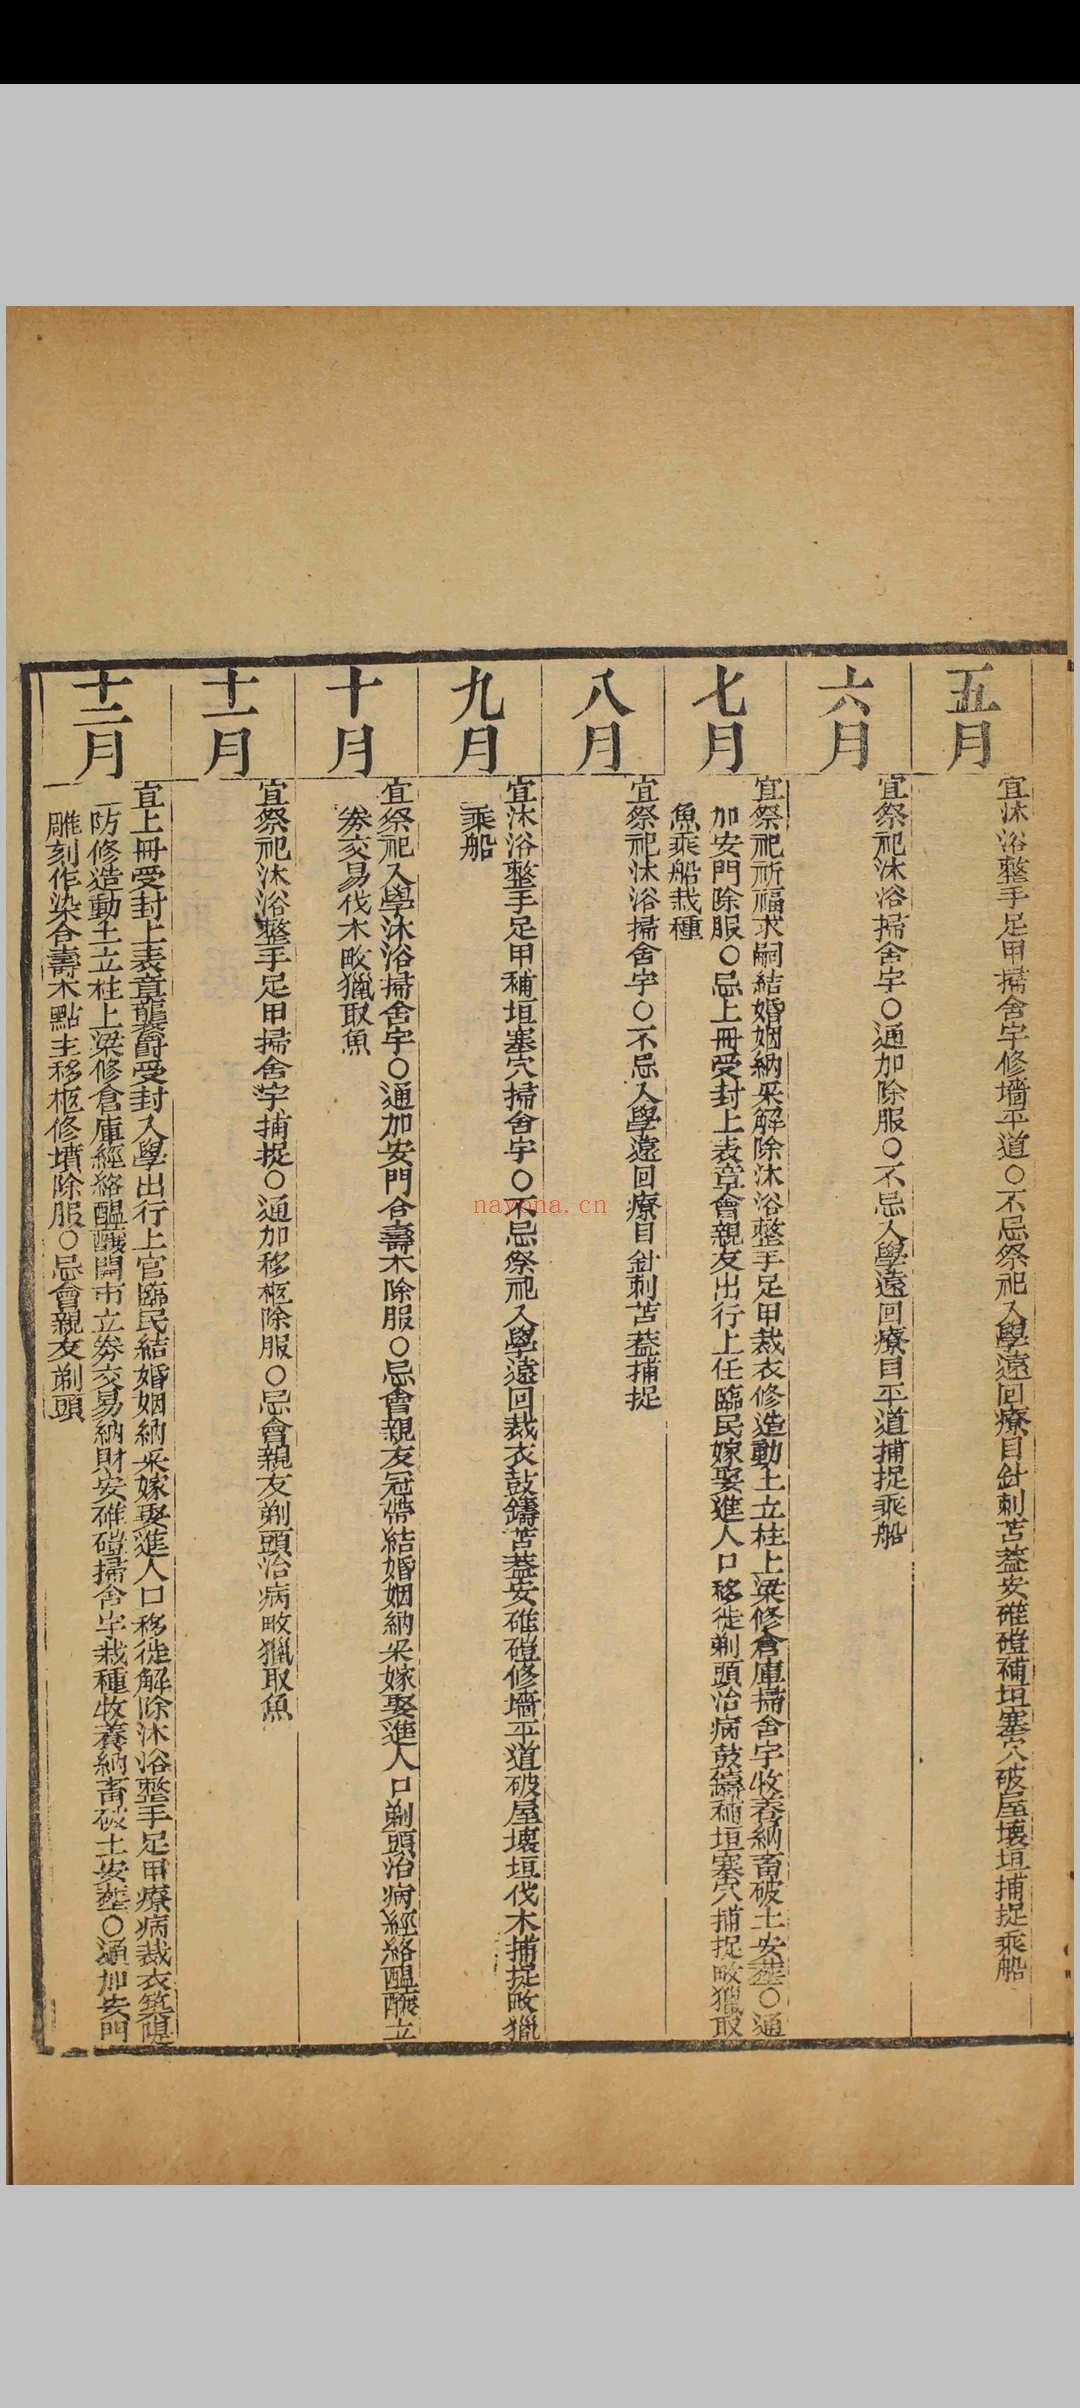 五月
宜沐浴整手足甲掃舍宇修墻平道○不忌祭祀入學遠回療目針刺苫蓋安碓磑補垣塞穴破屋壞垣捕捉乘船
六月
宜祭祀沐浴掃舍宇○通加除服○不忌入學遠回療目平道捕捉乘船
七月
宜祭祀祈福求嗣結婚姻納采解除沐浴整手足甲裁衣修造動土立柱上梁修倉庫掃舍宇牧養納畜破土安葬○通
加安門除服○忌上冊受封上表章會親友出行上任臨民嫁娶進人口移徙剃頭治病鼓鑄補垣塞穴捕捉畋獵取
魚乘船栽種
八月
宜祭祀沐浴掃舍宇○不忌入學遠回療目針刺苫蓋捕捉
九月
宜沐浴整手足甲補垣塞穴掃舍宇○不忌祭祀入學遠回裁衣鼓鑄苫蓋安碓磑修墻平道破屋壞垣伐木捕捉畋獵
乘船
十月
宜祭祀入學沐浴掃舍宇○通加安門合壽木除服○忌會親友冠帶結婚姻納采嫁娶進人口剃頭治病經絡醞釀立
券交易伐木畋獵取魚
十一月
宜祭祀沐浴整手足甲掃舍宇捕捉○通加移柩除服○忌會親友剃頭治病畋獵取魚
十二月
宜上冊受封上表章襲爵受封入學出行上官臨民結婚姻納采嫁娶進人口移徙解除沐浴整手足甲療病裁衣築隄
防修造動土立柱上梁修倉庫經絡醞釀開市立券交易納財安碓磑掃舍宇栽種牧養納畜破土安葬○通加安門
雕刻作染合壽木點主移柩修墳除服○忌會親友剃頭
nayona.cn